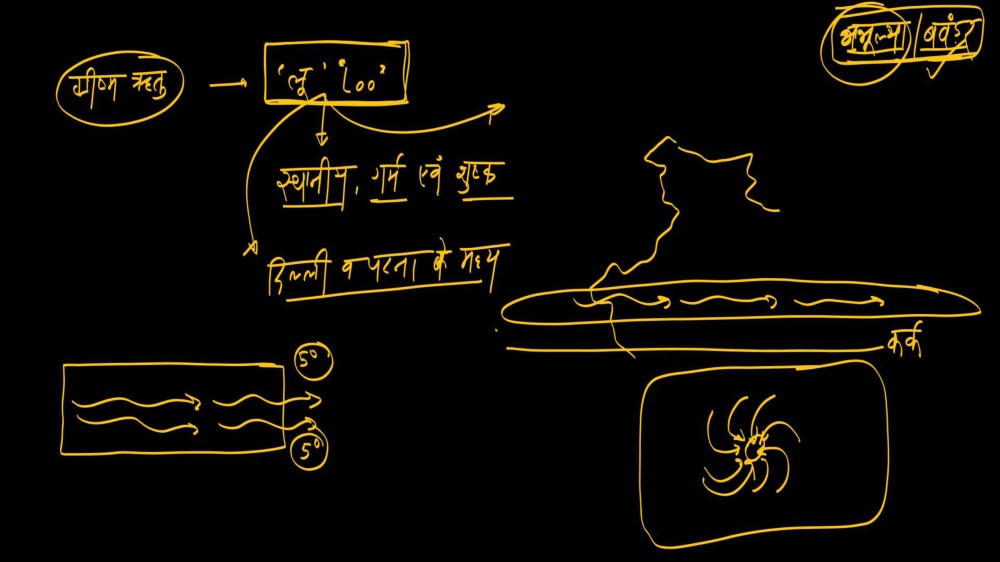 बवंडर
ग्रीष्म ऋतु
'लू' Loo"
स्थानीय, गर्म एवं शुष्क
दिल्ली व पटना के मध्य
कर्क
5°
5°